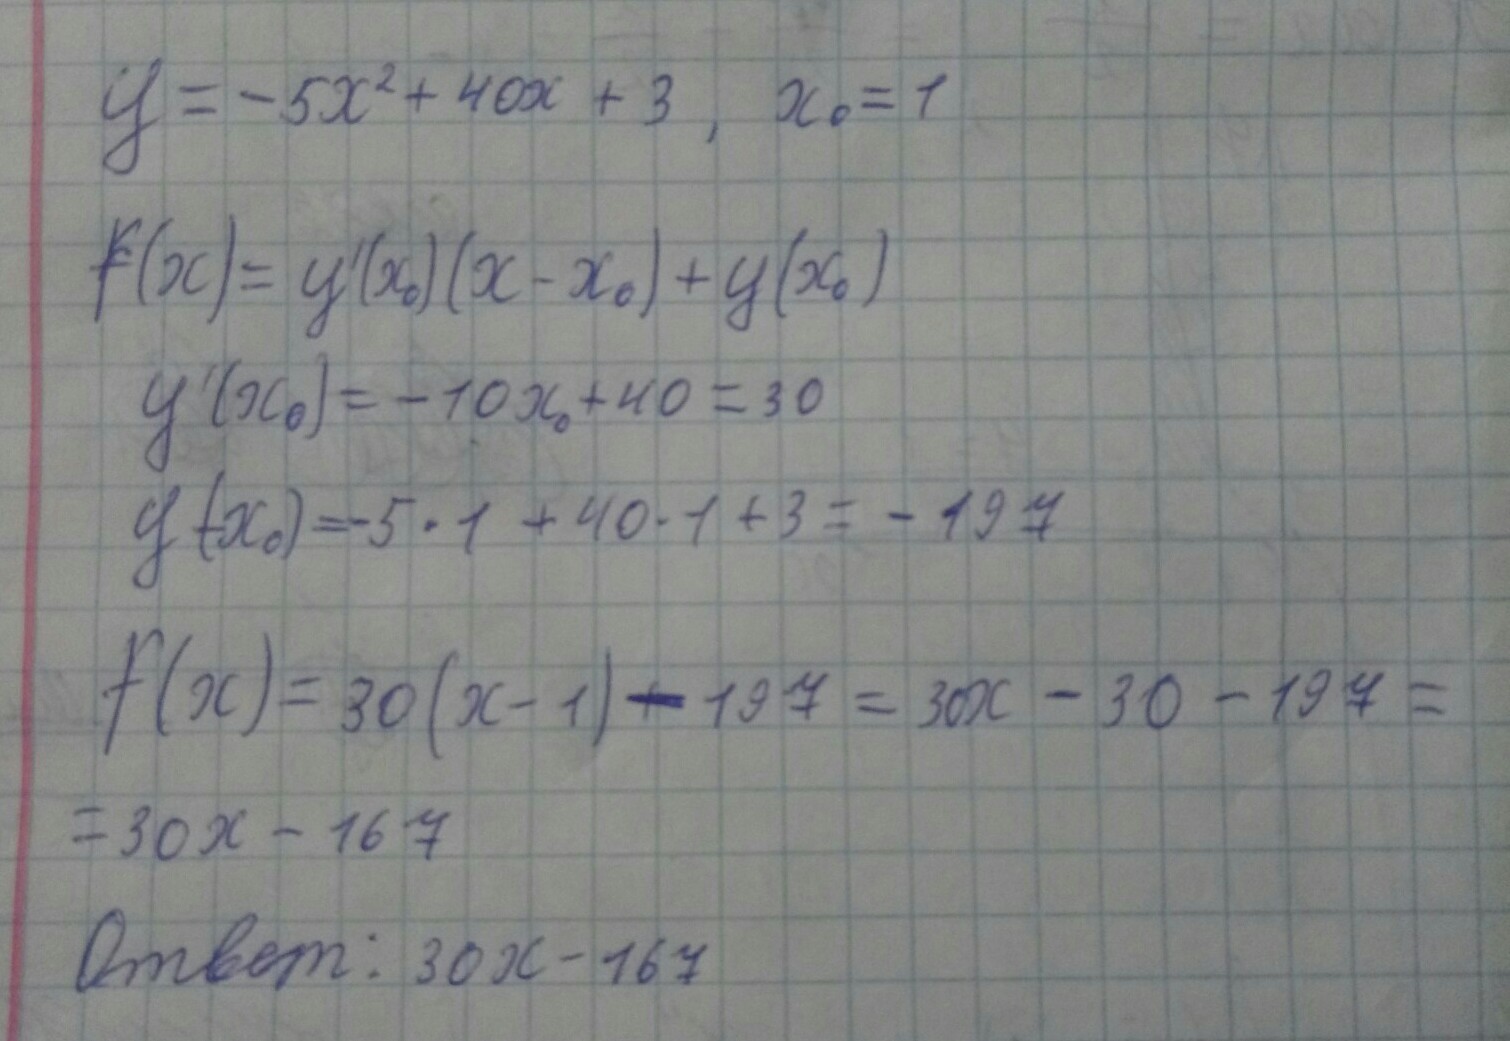 y = -5x² + 40x + 3 , x₀ = 1
F(x) = y'(x₀)(x - x₀) + y(x₀)
y'(x₀) = -10x₀ + 40 = 30
y(x₀) = -5 · 1 + 40 · 1 + 3 = -197
F(x) = 30(x - 1) - 197 = 30x - 30 - 197 =
= 30x - 167
Ответ: 30x - 167